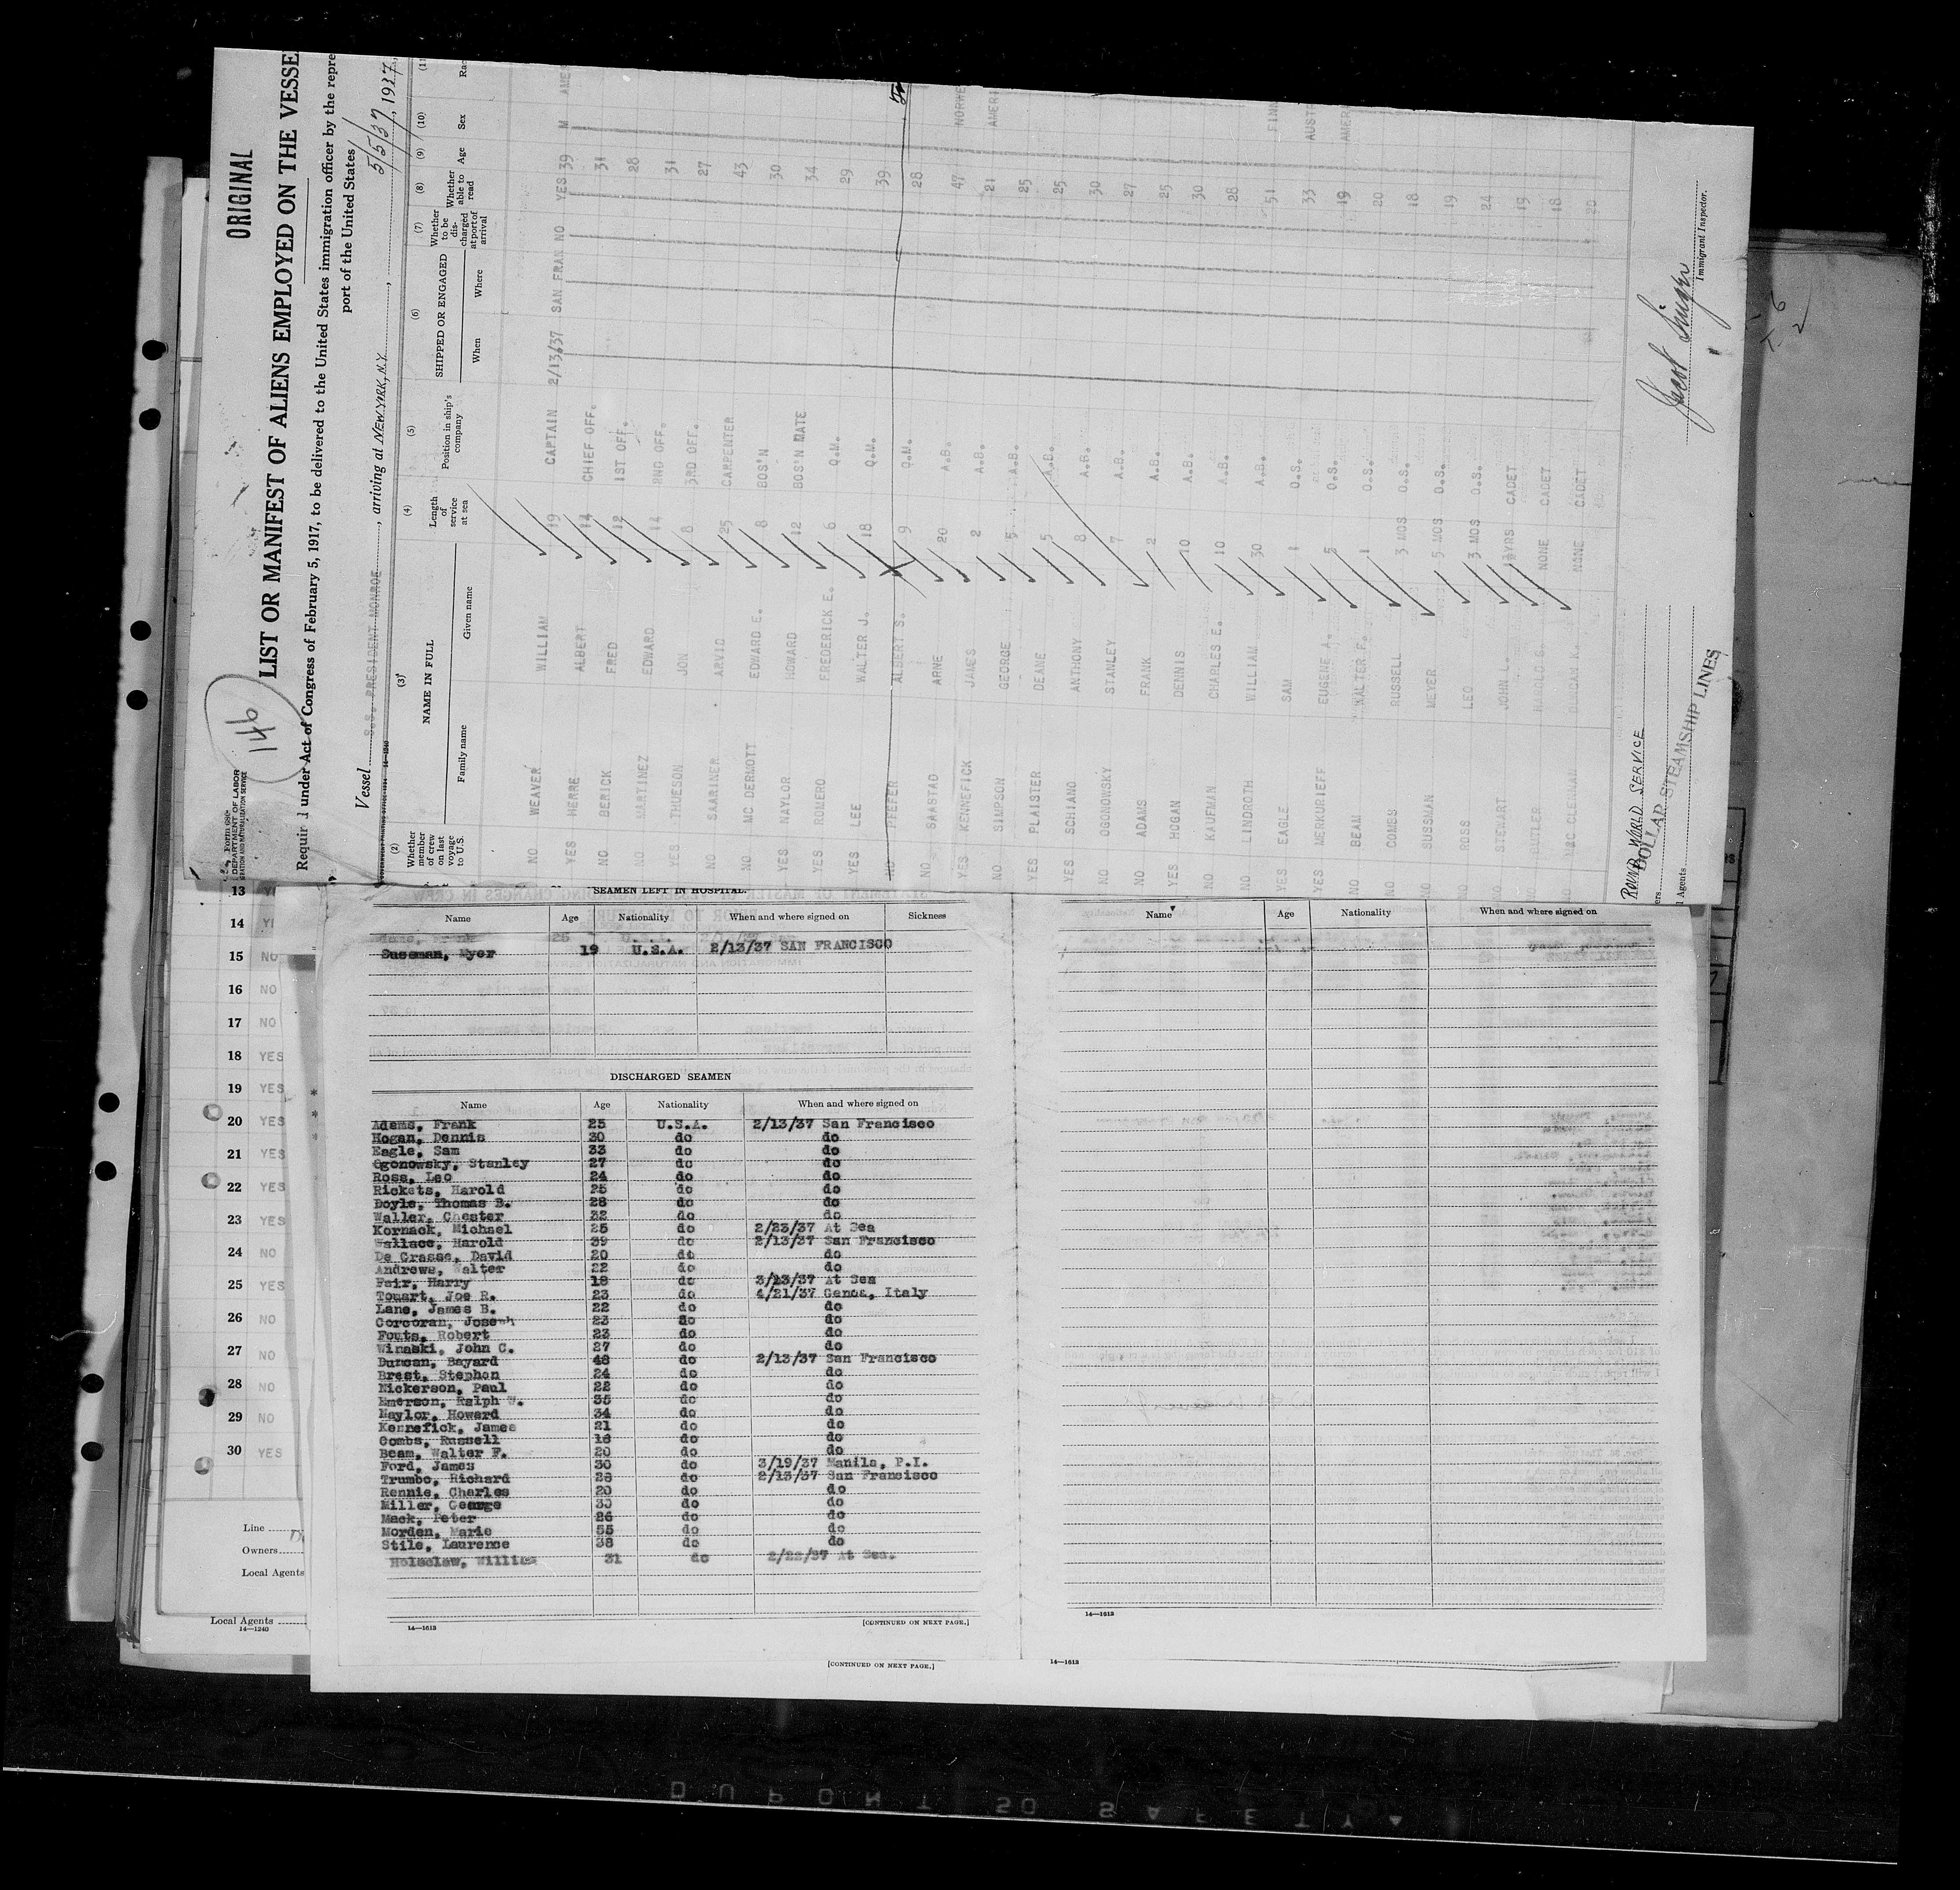 ORIGINAL
LIST OR MANIFEST OF ALIENS EMPLOYED ON THE VESSE
Required under Act of Congress of February 5, 1917, to be delivered to the United States immigration officer by the repre
port of the United States
146
5/5/37
Vessel S.S. PRESIDENT MONROE, arriving at NEW YORK, N.Y., 1937
DEPARTMENT OF LABOR
(2) (3) (4) (5) (6) (7) (8) (9) (10) (11
Whether member of crew on last voyage to U.S. NAME IN FULL Family name Given name Length of service at sea Position in ship's company SHIPPED OR ENGAGED When Where Whether to be discharged at port of arrival Whether able to read Age Sex Rac
NO WEAVER WILLIAM 19 CAPTAIN 2/13/37 SAN FRAN NO YES 39 M AMER
YES HERRE ALBERT 14 CHIEF OFF. 31
NO BERICK FRED 12 1ST OFF. 28
NO MARTINEZ EDWARD 14 2ND OFF. 31
YES THUESON JON 8 3RD OFF. 27
NO SAARINER ARVID 25 CARPENTER 43
NO MC DERMOTT EDWARD E. 8 BOS'N 30
YES NAYLOR HOWARD 12 BOS'N MATE 34
YES ROMERO FREDERICK E. 6 Q.M. 29
YES LEE WALTER J. 18 Q.M. 39
NO PFEFER ALBERT S. 9 Q.M. 28
NO SAASTAD ARNE 20 A.B. 47 NORWE
YES KENNEFICK JAMES 2 A.B. 21 AMERI
NO SIMPSON GEORGE 5 A.B. 25
YES PLAISTER DEANE 5 A.B. 25
YES SCHIANO ANTHONY 8 A.B. 30
NO OGONOWSKY STANLEY 7 A.B. 27
NO ADAMS FRANK 2 A.B. 25
YES HOGAN DENNIS 10 A.B. 30
NO KAUFMAN CHARLES E. 10 A.B. 28
NO LINDROTH WILLIAM 30 A.B. 51 FINN
YES EAGLE SAM 1 O.S. 33 AUST
YES MERKURIEFF EUGENE A. 5 O.S. 19 AMER
NO BEAM WALTER F. 1 O.S. 20
NO COMBS RUSSELL 3 MOS O.S. 18
NO SUSSMAN MEYER 5 MOS O.S. 19
NO ROSS LEO 3 MOS O.S. 24
NO STEWART JOHN L. CADET 19
NO BUTLER HAROLD G. NONE CADET 18
NO MAC CLENNAN DUNCAN K. NONE CADET 20
ROUND WORLD SERVICE
DOLLAR STEAMSHIP LINES
Agents
Jacob Singer
Immigrant Inspector.
13
14
15 NO
16 NO
17 NO
18 YES
19 YES
20 YES
21 YES
22 YES
23 YES
24 NO
25 YES
26 NO
27 NO
28 NO
29 NO
30 YES
Line
Owners
Local Agents
Local Agents
14—1240
SEAMEN LEFT IN HOSPITAL.
Name Age Nationality When and where signed on Sickness
Sussman, Myer 19 U.S.A. 2/13/37 SAN FRANCISCO
DISCHARGED SEAMEN
Name Age Nationality When and where signed on
Adams, Frank 25 U.S.A. 2/13/37 San Francisco
Hogan, Dennis 30 do do
Eagle, Sam 33 do do
Ogonowsky, Stanley 27 do do
Ross, Leo 24 do do
Rickets, Harold 25 do do
Doyle, Thomas B. 28 do do
Waller, Chester 32 do do
Kornack, Michael 25 do 2/23/37 At Sea
Wallace, Harold 39 do 2/13/37 San Francisco
De Grasse, David 20 do do
Andrews, Walter 22 do do
Fair, Harry 18 do 3/13/37 At Sea
Touart, Joe R. 23 do 4/21/37 Genoa, Italy
Lane, James B. 22 do do
Corcoran, Joseph 23 do do
Fouts, Robert 23 do do
Winaski, John C. 27 do do
Duncan, Bayard 48 do 2/13/37 San Francisco
Brest, Stephen 24 do do
Nickerson, Paul 22 do do
Emerson, Ralph W. 35 do do
Naylor, Howard 34 do do
Kennefick, James 21 do do
Combs, Russell 18 do do
Beam, Walter F. 20 do do
Ford, James 30 do 3/19/37 Manila, P.I.
Trumbo, Richard 28 do 2/13/37 San Francisco
Rennie, Charles 20 do do
Miller, George 30 do do
Mack, Peter 26 do do
Morden, Marie 55 do do
Stile, Laurence 38 do do
Holsclaw, William 31 do 2/22/37 At Sea.
[CONTINUED ON NEXT PAGE.]
14—1613
[CONTINUED ON NEXT PAGE.]
Name Age Nationality When and where signed on
14—1613
14—1613
DUPONT SO SAFETY